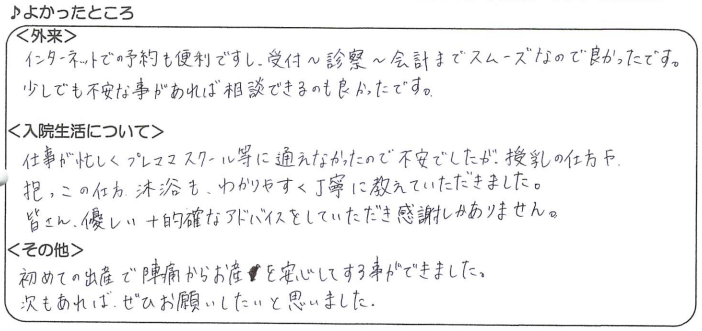 ♪よかったところ
<外来>
インターネットでの予約も便利ですし、受付～診察～会計までスムーズなので良かったです。
少しでも不安な事があれば相談できるのも良かったです。
<入院生活について>
仕事が忙しくプレママスクール等に通えなかったので不安でしたが、授乳の仕方や
抱っこの仕方、沐浴も、わかりやすく丁寧に教えていただきました。
皆さん、優しい+的確なアドバイスをしていただき感謝しかありません。
<その他>
初めての出産で陣痛からお産を安心してする事ができました。
次もあれば、ぜひお願いしたいと思いました。